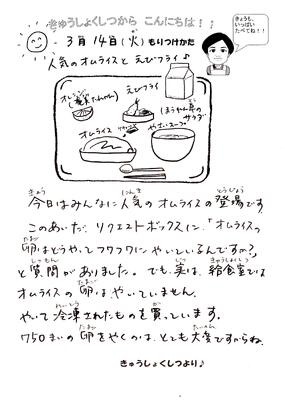 きゅうしょくしつから こんにちは！！
きょうも、
いっぱい
たべてね！！
3月14日(火) もりつけかた
人気のオムライスと えびフライ♪
えびフライ
ほうれん草の
サラダ
オムライス
やさいスープ
きょう にんき とうじょう
今日はみんなに人気のオムライスの登場です。
このあいだ、リクエストボックスに、「オムライスの
たまご
卵はどうやってフワフワにやいているんですか？」
しつもん じつ きゅうしょくしつ
と質問がありました。でも、実は、給食室では
たまご
オムライスの卵は、やいていません。
れいとう か
やいて冷凍されたものを買っています。
たまご たいへん
750まいの卵をやくのは、とても大変ですからね。
きゅうしょくしつより♪